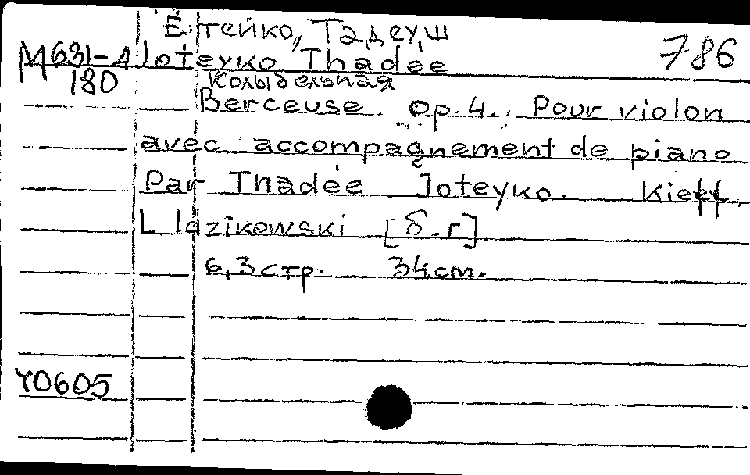 Ётейко, Тадеуш
М631-А Joteyko Thadée 786
180 Колыбельная
Berceuse. op. 4. Pour violon
avec accompagnement de piano
Par Thadée Joteyko. Kieff,
L Idzikowski [б.г]
6,3 стр. 34 cm.
Y0605